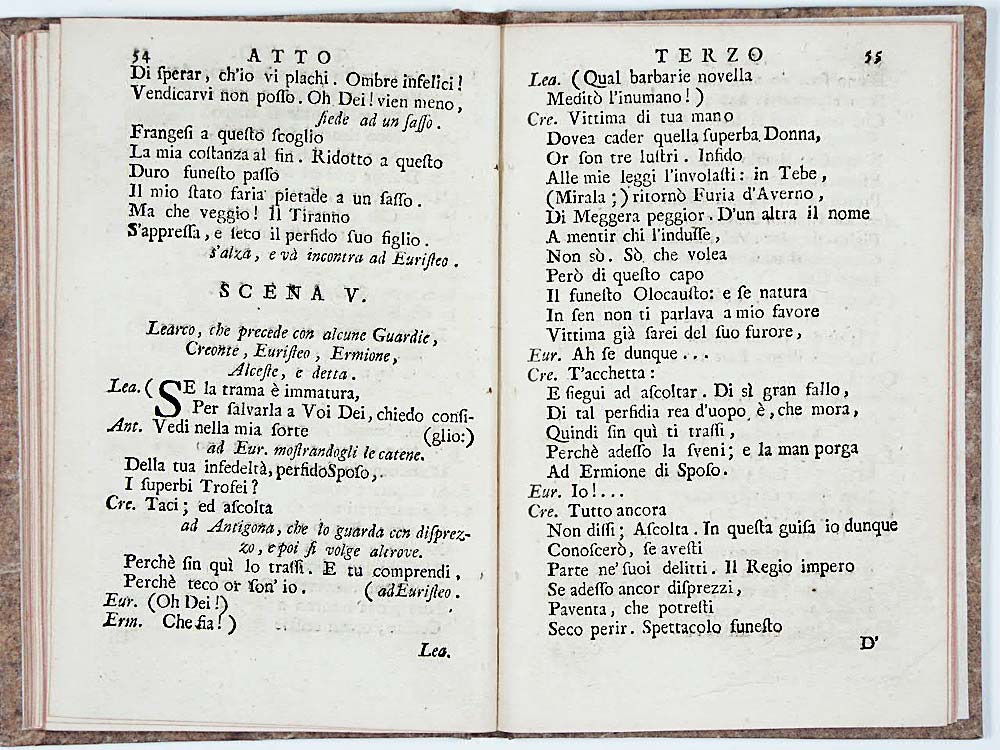 54 ATTO
Di ſperar, ch'io vi plachi. Ombre infelici!
Vendicarvi non poſſo. Oh Dei! vien meno,
ſiede ad un ſaſſo.
Frangeſi a queſto ſcoglio
La mia coſtanza al fin. Ridotto a queſto
Duro funeſto paſſo
Il mio ſtato faria pietade a un ſaſſo.
Ma che veggio! Il Tiranno
S'appreſſa, e ſeco il perfido ſuo figlio.
s'alza, e và incontra ad Euriſteo.
SCENA V.
Learco, che precede con alcune Guardie,
Creonte, Euriſteo, Ermione,
Alceſte, e detta.
Lea. (SE la trama è immatura,
Per ſalvarla a Voi Dei, chiedo conſi-
Ant. Vedi nella mia ſorte (glio:)
ad Eur. moſtrandogli le catene.
Della tua infedeltà, perfido Spoſo,
I ſuperbi Trofei?
Cre. Taci; ed aſcolta
ad Antigona, che lo guarda con diſprez-
zo, e poi ſi volge altrove.
Perchè ſin quì lo traſſi. E tu comprendi,
Perchè teco or ſon' io. (ad Euriſteo.
Eur. (Oh Dei!)
Erm. Che fia!)
Lea.
TERZO 55
Lea. (Qual barbarie novella
Meditò l'inumano!)
Cre. Vittima di tua mano
Dovea cader quella ſuperba Donna,
Or ſon tre luſtri. Infido
Alle mie leggi l'involaſti: in Tebe,
(Mirala;) ritornò Furia d'Averno,
Di Meggera peggior. D'un altra il nome
A mentir chi l'induſſe,
Non sò. Sò che volea
Però di queſto capo
Il funeſto Olocauſto: e ſe natura
In ſen non ti parlava a mio favore
Vittima già ſarei del ſuo furore,
Eur. Ah ſe dunque...
Cre. T'acchetta:
E ſiegui ad aſcoltar. Di sì gran fallo,
Di tal perfidia rea d'uopo è, che mora,
Quindi ſin quì ti traſſi,
Perchè adeſſo la ſveni; e la man porga
Ad Ermione di Spoſo.
Eur. Io!...
Cre. Tutto ancora
Non diſſi; Aſcolta. In queſta guiſa io dunque
Conoſcerò, ſe aveſti
Parte ne' ſuoi delitti. Il Regio impero
Se adeſſo ancor diſprezzi,
Paventa, che potreſti
Seco perir. Spettacolo funeſto
D'